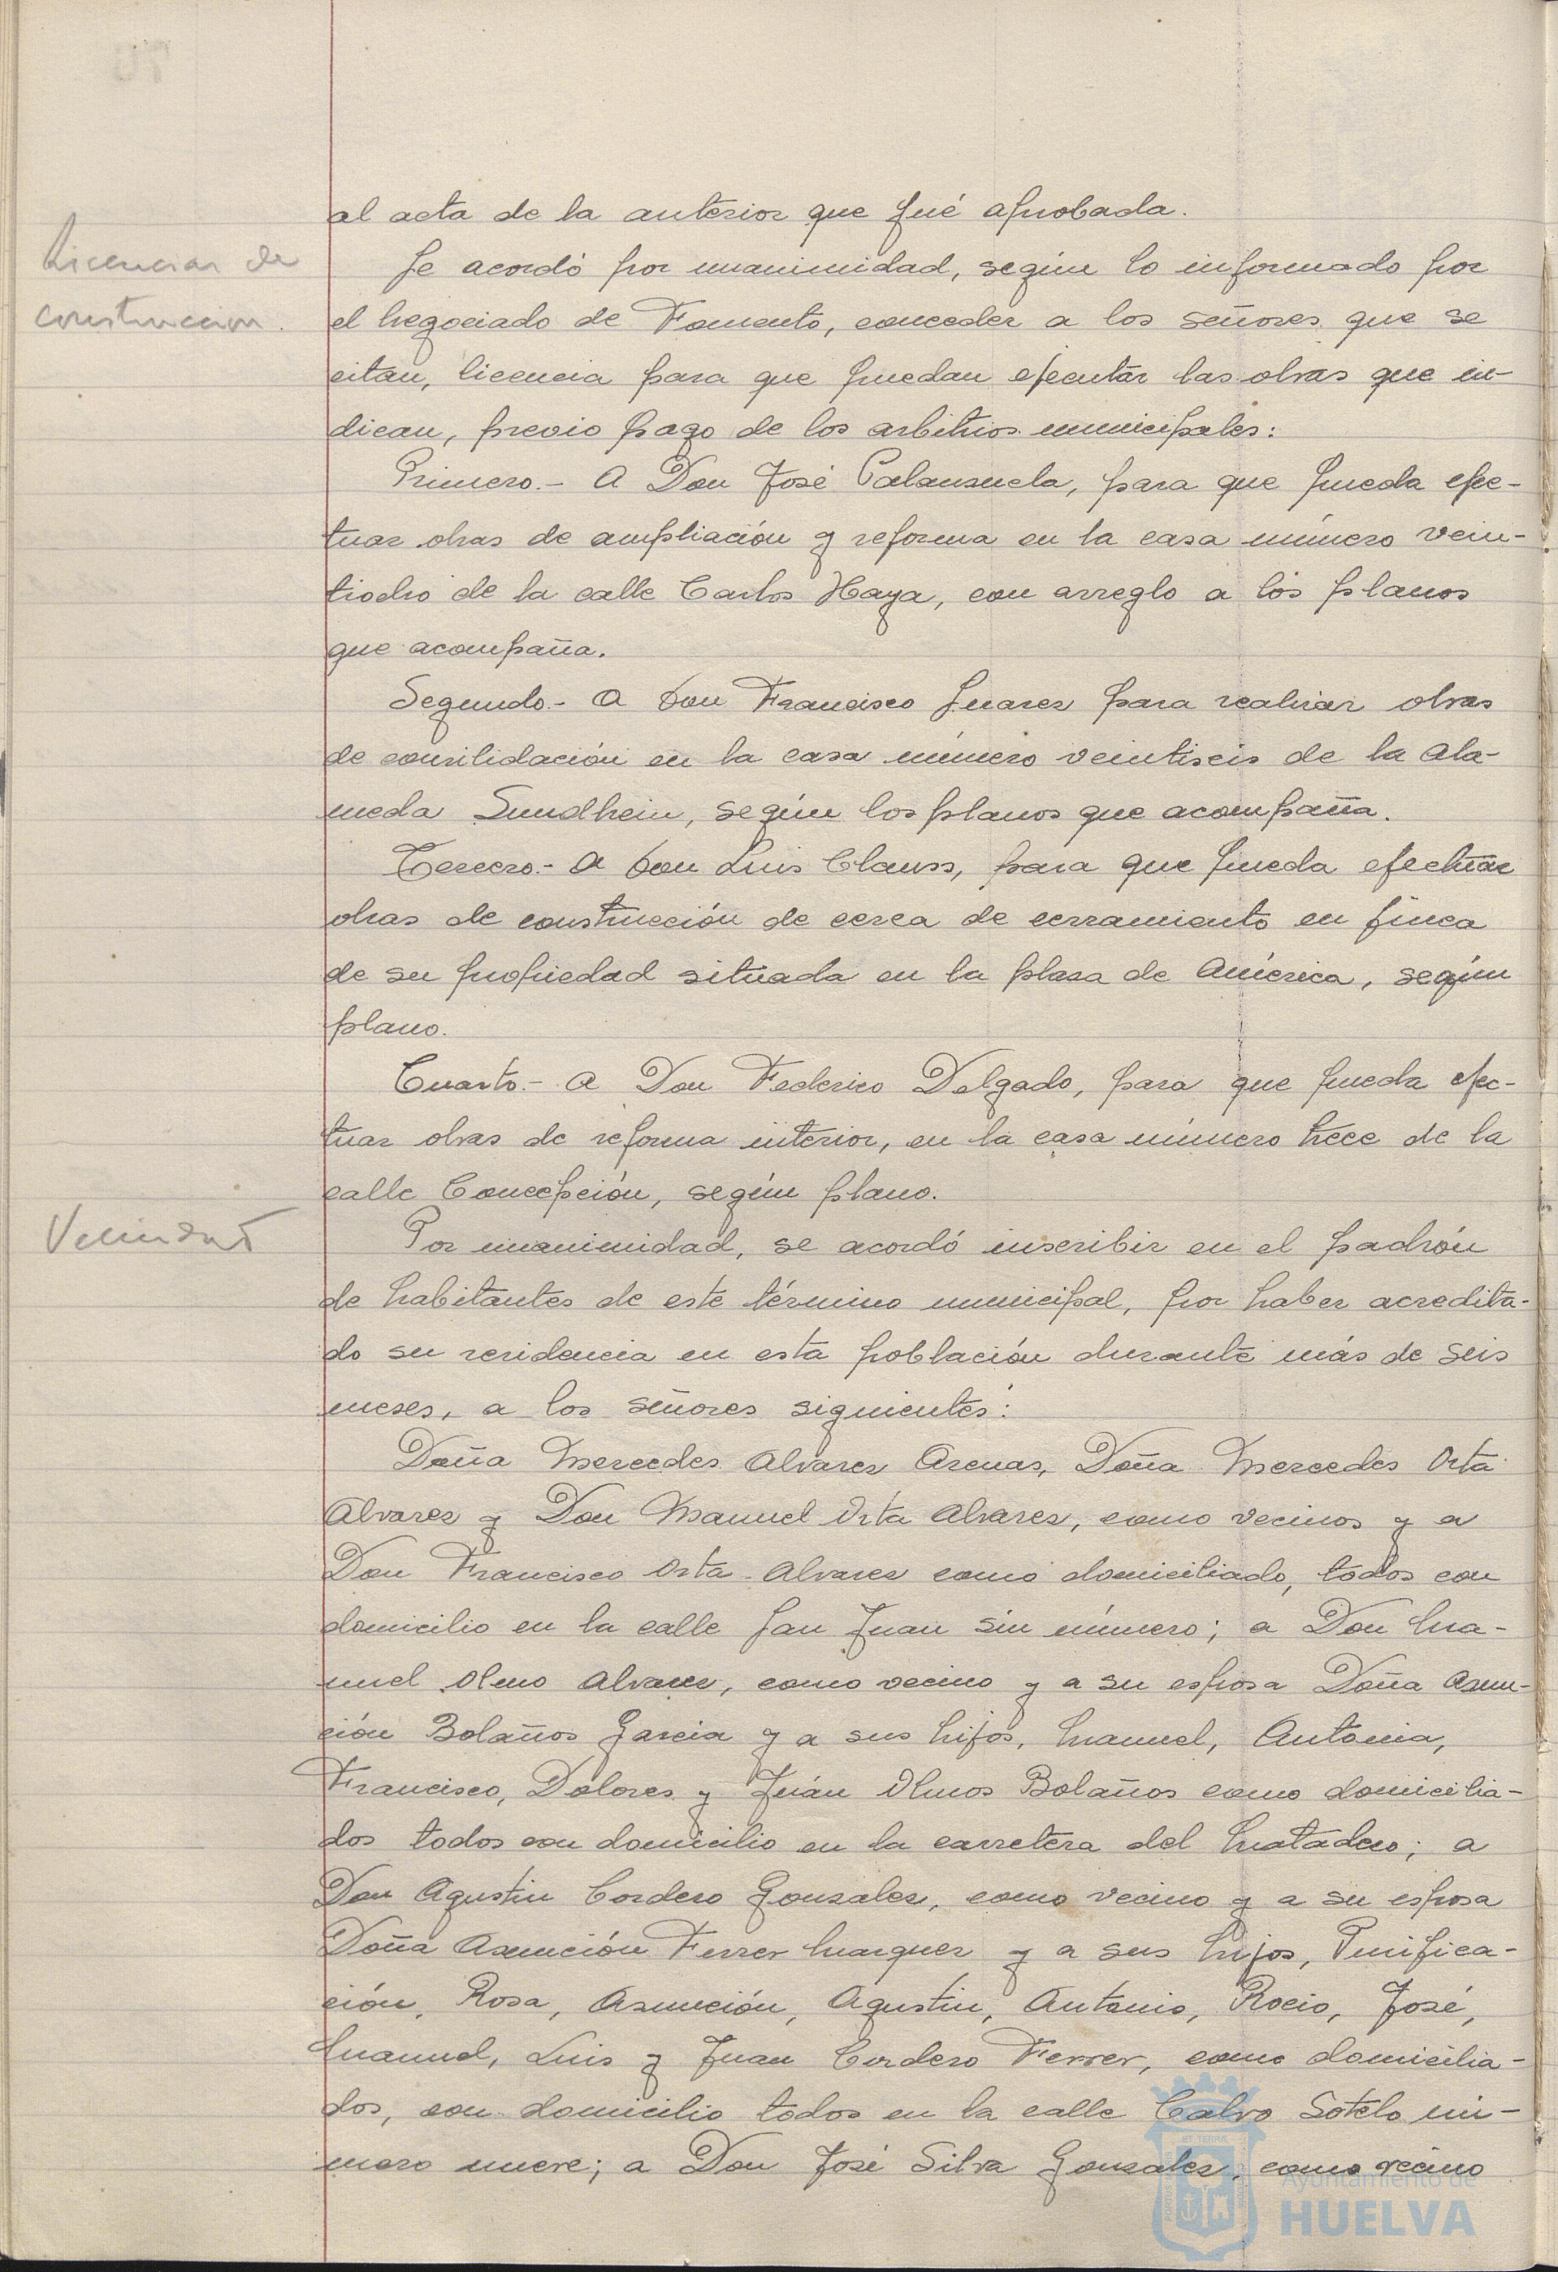 al acta de la anterior que fué aprobada.
Licencias de
construccion.
Se acordó por unanimidad, según lo informado por
el negociado de Fomento, conceder a los señores que se
citan, licencia para que puedan ejecutar las obras que in-
dican, previo pago de los arbitrios municipales:
Primero.- A Don José Palanzuela, para que pueda efec-
tuar obras de ampliación y reforma en la casa número vein-
tiocho de la calle Carlos Haya, con arreglo a los planos
que acompaña.
Segundo.- A Don Francisco Juarez para realizar obras
de consilidación en la casa número veintiseis de la Ala-
meda Sundhein, según los planos que acompaña.
Tercero.- A Don Luis Clauss, para que pueda efectuar
obras de construcción de cerca de cerramiento en finca
de su propiedad situada en la plaza de América, según
plano.
Cuarto.- A Don Federico Delgado, para que pueda efec-
tuar obras de reforma interior, en la casa número trece de la
calle Concepción, según plano.
Vecindad
Por unanimidad, se acordó inscribir en el padrón
de habitantes de este término municipal, por haber acredita-
do su residencia en esta población durante más de seis
meses, a los señores siguientes:
Doña Mercedes Alvarez Arenas, Doña Mercedes Orta
Alvarez y Don Manuel Orta Alvarez, como vecinos y a
Don Francisco Orta Alvarez como domiciliado, todos con
domicilio en la calle San Juan sin número; a Don Ma-
nuel Olmo Alvarez, como vecino y a su esposa Doña Asun-
ción Bolaños Garcia y a sus hijos, Manuel, Antonia,
Francisco, Dolores y Juán Olmos Bolaños como domicilia-
dos todos con domicilio en la carretera del Matadero; a
Don Agustin Cordero Gonzalez, como vecino y a su esposa
Doña Asunción Ferrer Marquez y a sus hijos, Purifica-
ción, Rosa, Asunción, Agustin, Antonio, Rocio, José,
Manuel, Luis y Juan Cordero Ferrer, como domicilia-
dos, con domicilio todos en la calle Calvo Sotelo nú-
mero nueve; a Don José Silva Gonzalez, como vecino
Ayuntamiento de
HUELVA